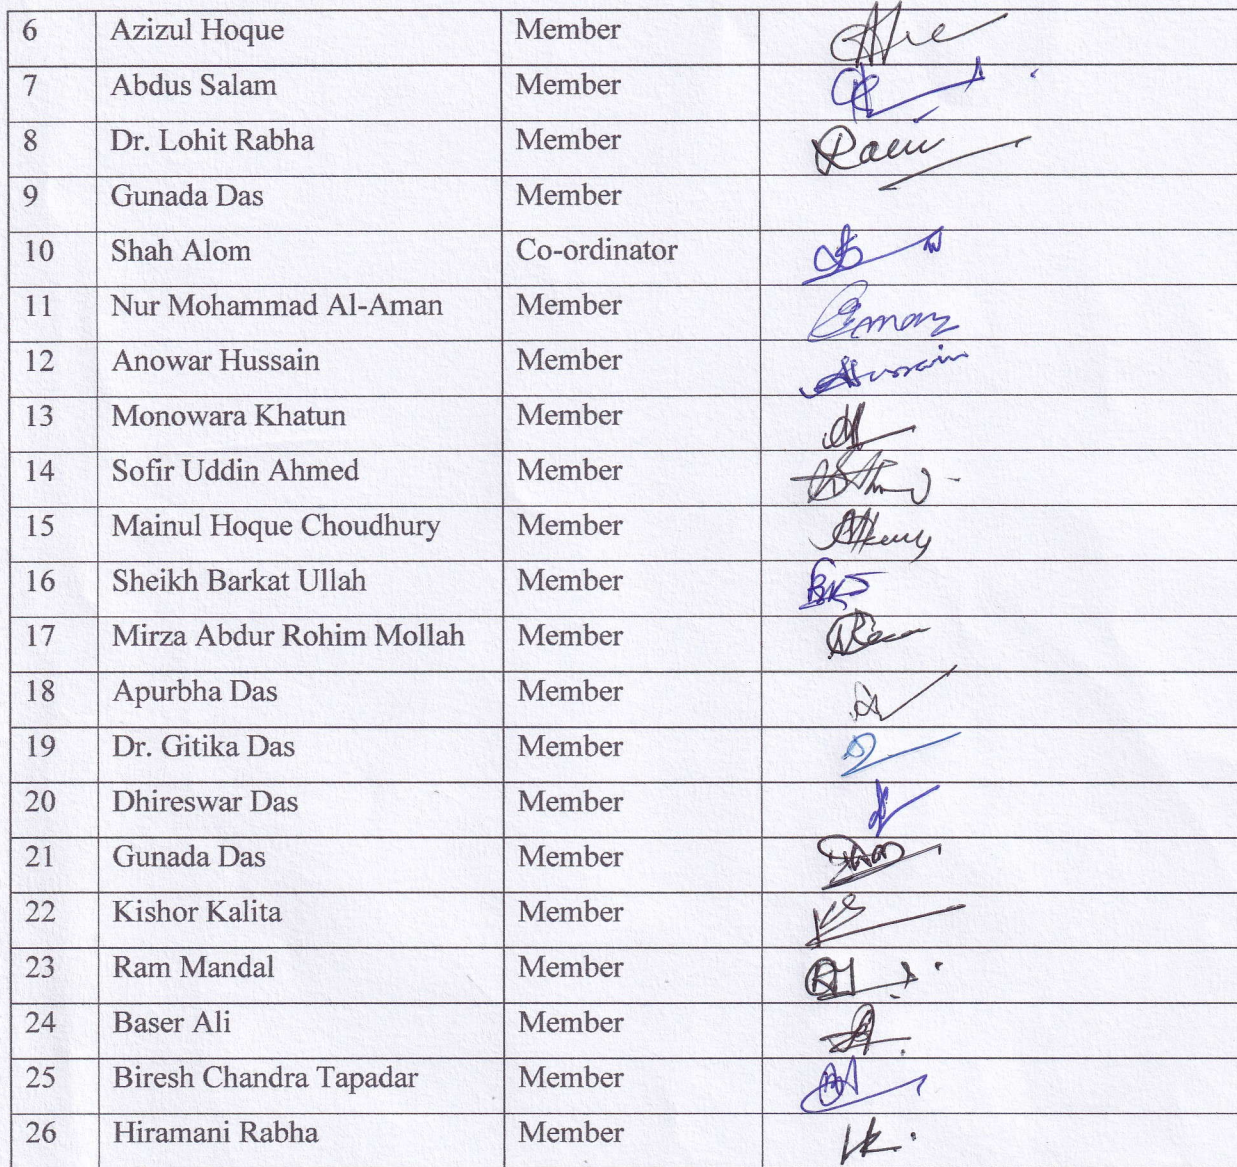 6 Azizul Hoque Member
7 Abdus Salam Member
8 Dr. Lohit Rabha Member
9 Gunada Das Member
10 Shah Alom Co-ordinator
11 Nur Mohammad Al-Aman Member
12 Anowar Hussain Member Hussain
13 Monowara Khatun Member
14 Sofir Uddin Ahmed Member
15 Mainul Hoque Choudhury Member
16 Sheikh Barkat Ullah Member
17 Mirza Abdur Rohim Mollah Member
18 Apurbha Das Member
19 Dr. Gitika Das Member
20 Dhireswar Das Member
21 Gunada Das Member
22 Kishor Kalita Member
23 Ram Mandal Member
24 Baser Ali Member
25 Biresh Chandra Tapadar Member
26 Hiramani Rabha Member